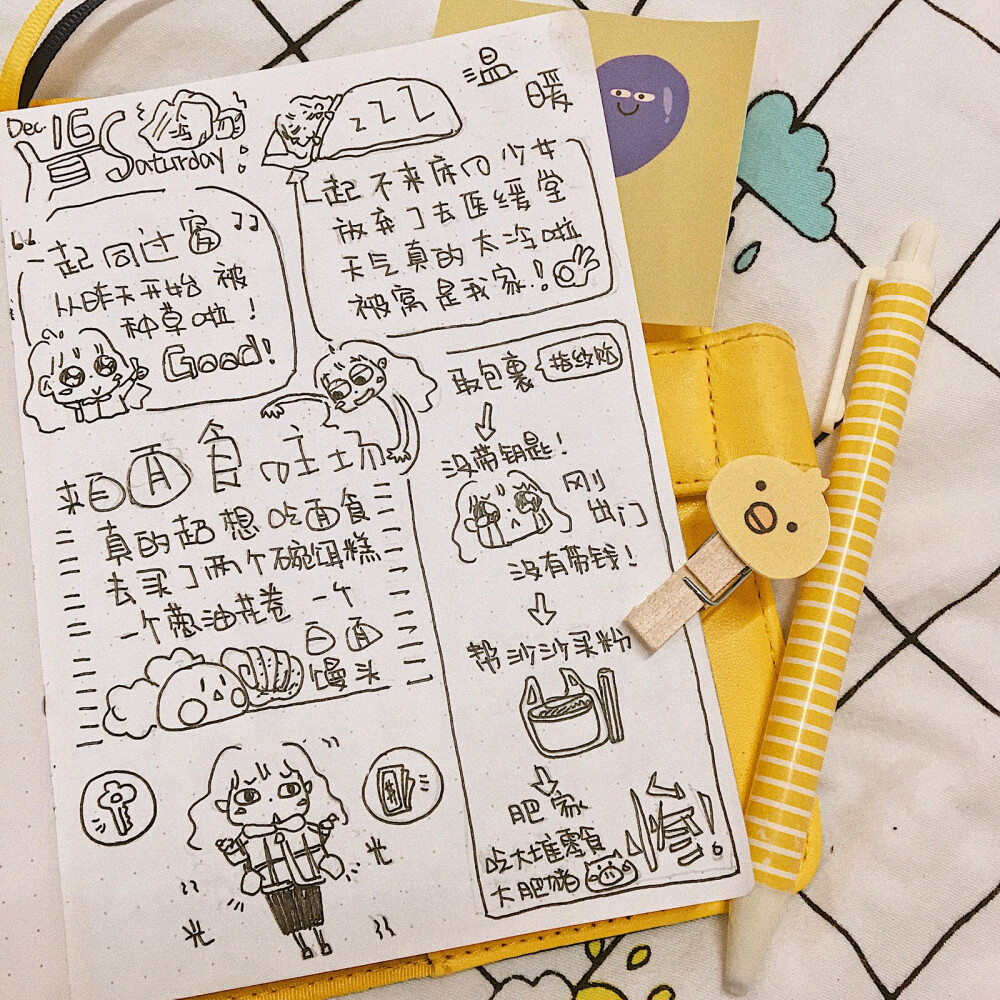 Dec 16
Saturday
zzz
温
暖
起不来床的少女
放弃了去医缓堂
天气真的太冷啦
被窝是我家!
“一起同过窗”
从昨天开始被
种草啦!
Good!
取包裹 指纹账
没带钥匙!
刚
出门
没有带钱!
帮沙沙买粉
肥家
吃大堆零食
大肥猪
惨!
来自面食主场
真的超想吃面食
去买了两个碗饵糕
一个葱油花卷 一个
白面
馒头
光
光